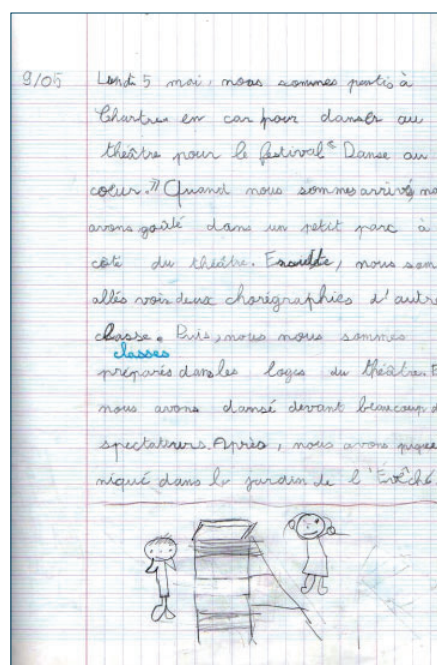 9/05 Lundi 5 mai, nous sommes partis à
Chartres en car pour danser au
théâtre pour le festival "Danse au
cœur." Quand nous sommes arrivés no
avons goûté dans un petit parc à
côté du théâtre. Ensuite, nous som
allés voir deux chorégraphies d'autre
classe. Puis, nous nous sommes
classes
préparés dans les loges du théâtre. E
nous avons dansé devant beaucoup d
spectateurs. Après, nous avons pique
niqué dans le jardin de l'Évêché.